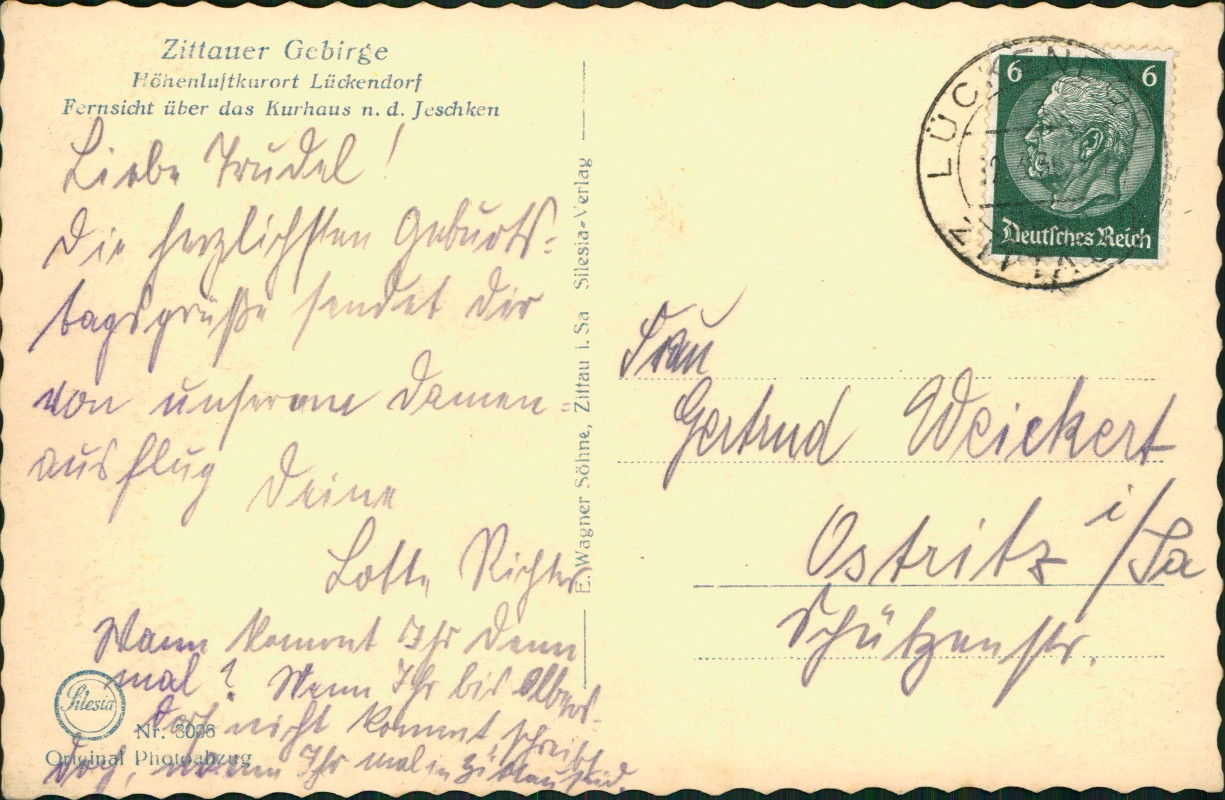 Zittauer Gebirge
Höhenluftkurort Lückendorf
Fernsicht über das Kurhaus n. d. Jeschken
Liebe Trudel!
Die herzlichsten Geburts-
tagsgrüße sendet Dir
von unserem Damen-
ausflug Deine
Lotte Richter
Wann kommt Ihr denn
mal? Wenn Ihr bis Olbers-
dorf nicht kommt, schreibt
doch, wann Ihr mal in Zittau seid.
Silesia
Nr. 3036
Original Photoabzug
E. Wagner Söhne, Zittau i. Sa Silesia-Verlag
6 6
Deutsches Reich
Frau
Gertrud Weickert
Ostritz i/Sa
Schützenstr.